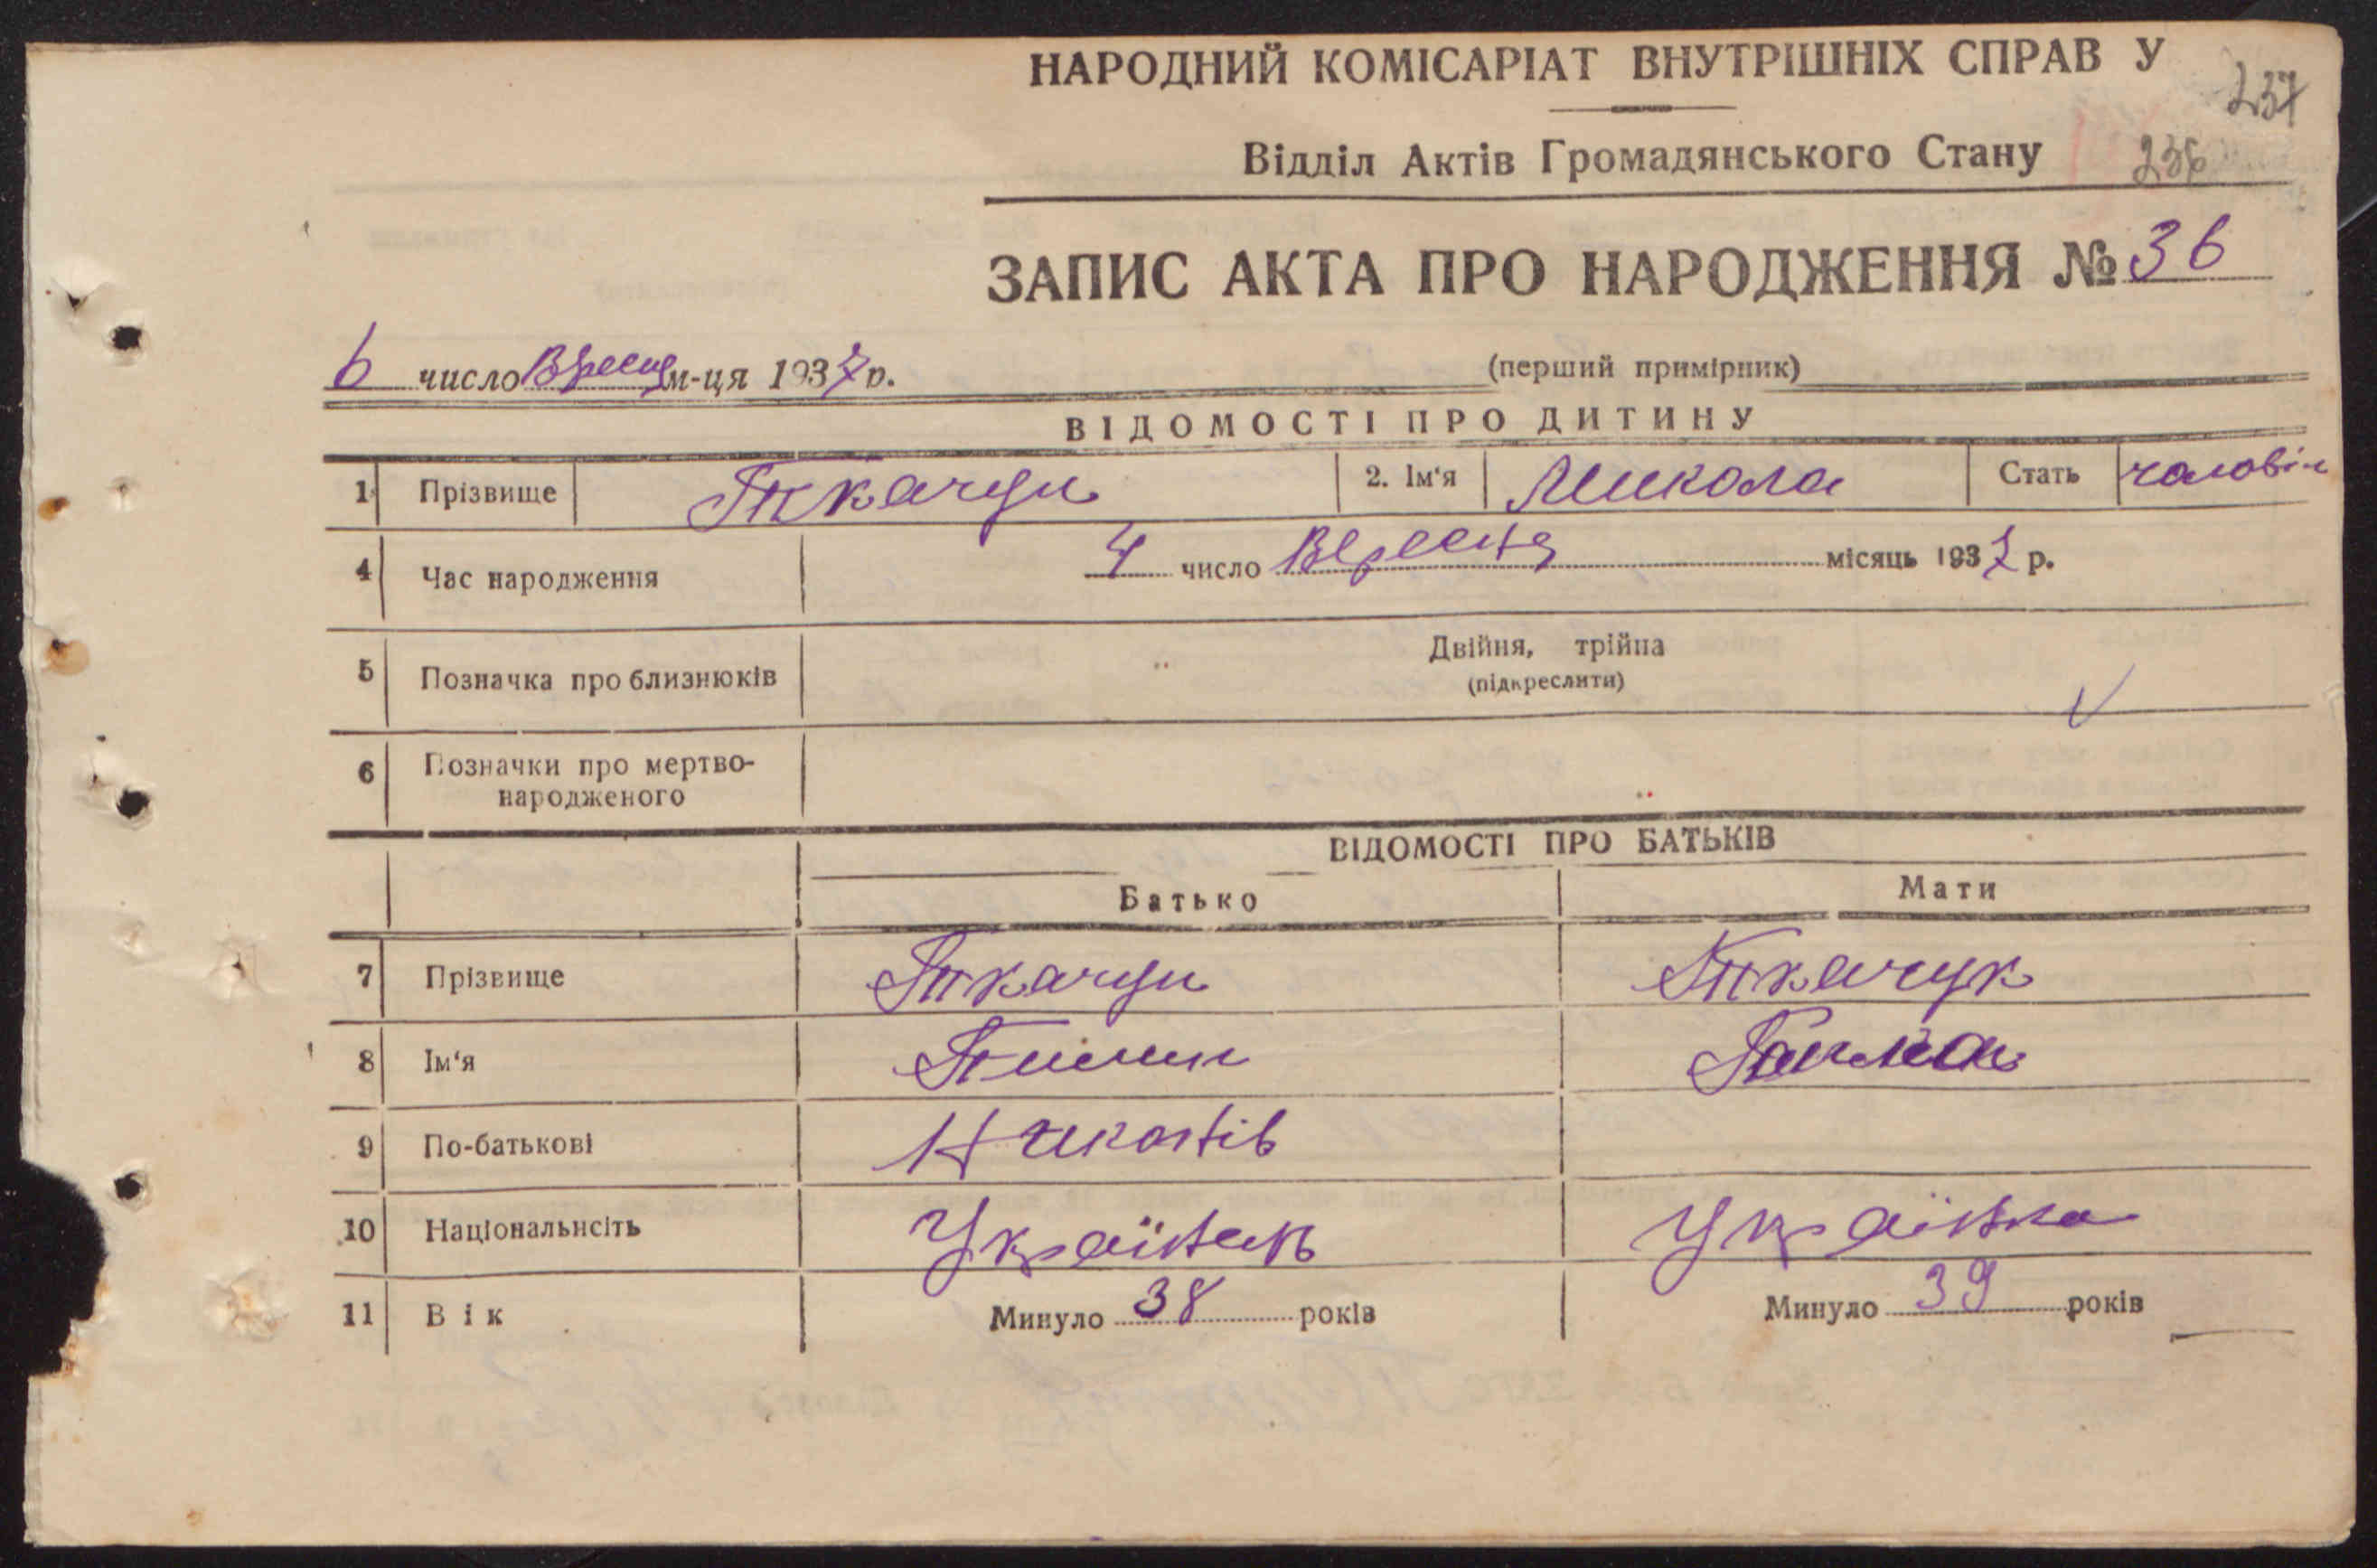 НАРОДНИЙ КОМІСАРІАТ ВНУТРІШНІХ СПРАВ У
237
Відділ Актів Громадянського Стану 236
ЗАПИС АКТА ПРО НАРОДЖЕННЯ № 36
6 число Вресня м-ця 1937 р. (перший примірник)
ВІДОМОСТІ ПРО ДИТИНУ
1 Прізвище Ткачук 2. Ім‘я Микола Стать чоловіч
4 Час народження 4 число Вересня місяць 1937 р.
5 Позначка про близнюків Двійня, трійна
(підкреслити)
6 Позначки про мертво-
народженого
ВІДОМОСТІ ПРО БАТЬКІВ
Батько Мати
7 Прізвище Ткачук Ткачук
8 Ім‘я Пилип
9 По-батькові
10 Національнсіть Українець Українка
11 Вік Минуло 38 років Минуло 39 років